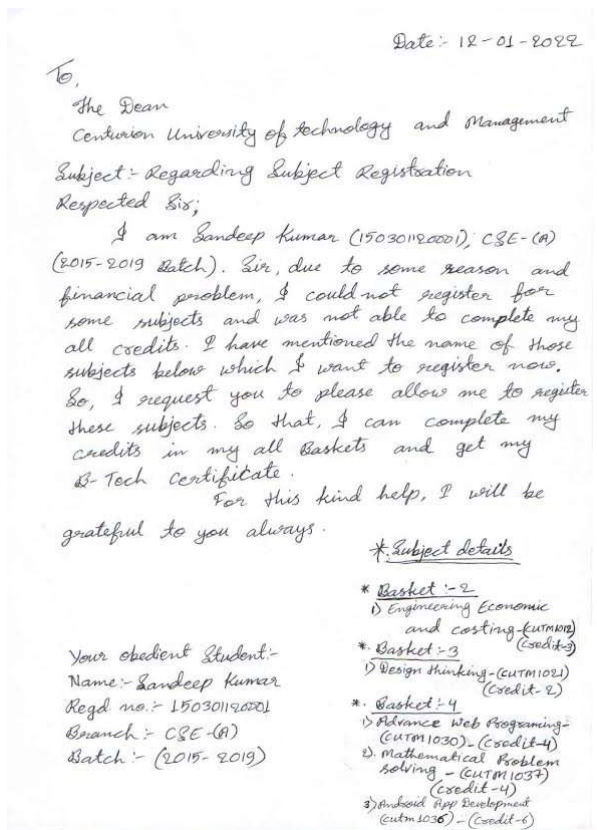 Date:- 12-01-2022
To,
The Dean
Centurion University of technology and Management
Subject:- Regarding Subject Registration
Respected Sir;
I am Sandeep Kumar (150301120001), CSE-(A)
(2015-2019 Batch). Sir, due to some reason and
financial problem, I could not register for
some subjects and was not able to complete my
all credits. I have mentioned the name of those
subjects below which I want to register now.
So, I request you to please allow me to register
these subjects. So that, I can complete my
credits in my all Baskets and get my
B-Tech Certificate.
For this kind help, I will be
grateful to you always.
Your obedient Student:-
Name:- Sandeep Kumar
Regd no.:- 150301120001
Branch:- CSE-(A)
Batch:- (2015-2019)
*. Subject details
* Basket:-2
1) Engineering Economic
and costing-(CUTM1012)
(Credit-3)
*. Basket:-3
1) Design thinking-(CUTM1021)
(Credit-2)
*. Basket:-4
1) Advance Web Programing-
(CUTM1030)-(Credit-4)
2). Mathematical Problem
solving - (CUTM1037)
(Credit-4)
3) Android App Development
(cutm1036)-(Credit-6)